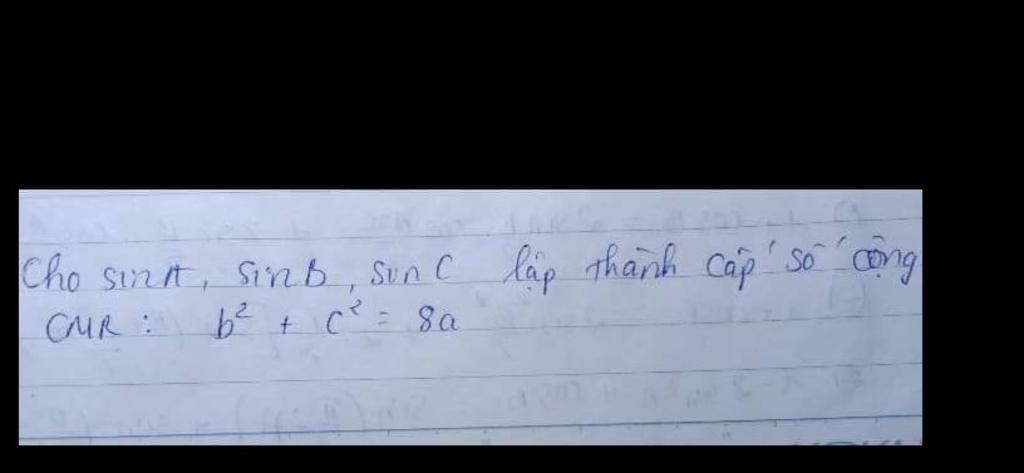 Cho sinA, sinB, sinC lập thành cấp số cộng
CMR: b² + c² = 8a